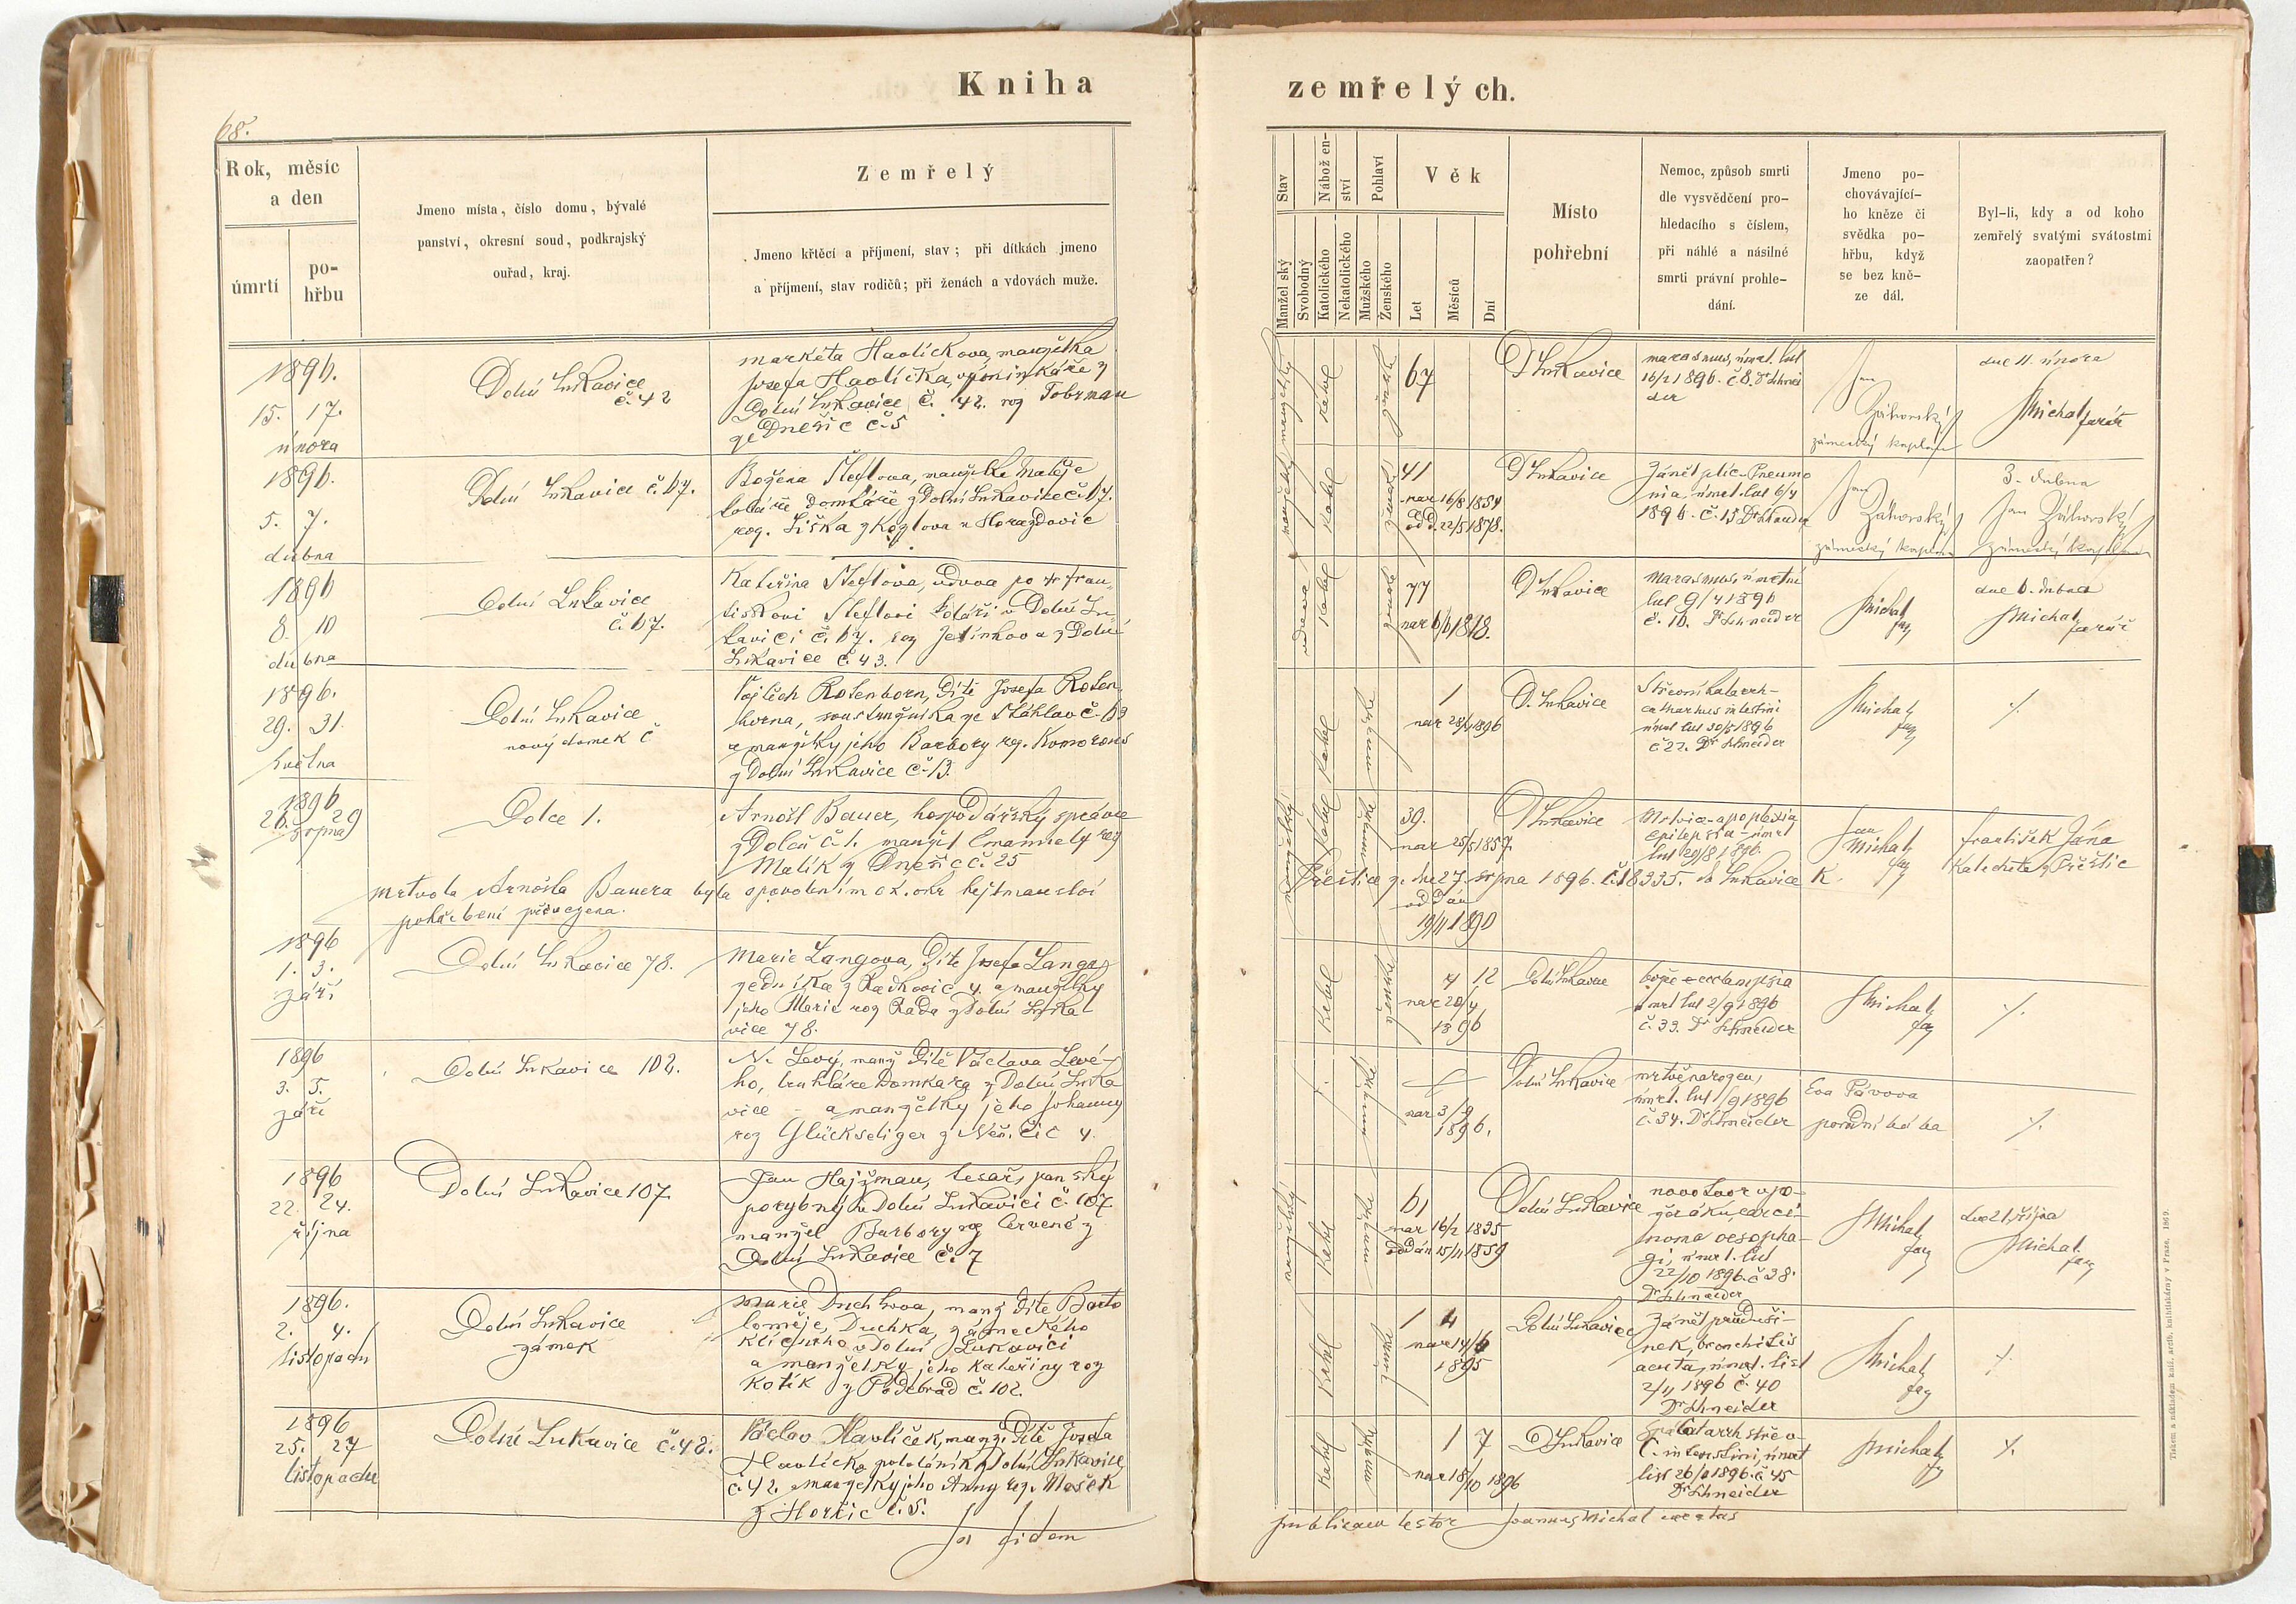 Kniha
zemřelých.
68.
Rok, měsíc
a den
úmrtí
po-
hřbu
Jmeno místa, číslo domu, bývalé
panství, okresní soud, podkrajský
ouřad, kraj.
Zemřelý
Jmeno křtěcí a příjmení, stav; při dítkách jmeno
a příjmení, stav rodičů; při ženách a vdovách muže.
Stav
Manželský
Svobodný
Nábožen-
ství
Katolického
Nekatolického
Pohlaví
Mužského
Ženského
Věk
Let
Měsíců
Dní
Místo
pohřební
Nemoc, způsob smrti
dle vysvědčení pro-
hledacího s číslem,
při náhlé a násilné
smrti právní prohle-
dání.
Jmeno po-
chovávající-
ho kněze či
svědka po-
hřbu, když
se bez kně-
ze dál.
Byl-li, kdy a od koho
zemřelý svatými svátostmi
zaopatřen?
1896.
15. 17.
února
Dolní Lukavice
č. 42
Markéta Havlíčkova, manželka
Josefa Havlíčka, výminkáře z
Dolní Lukavice č. 42. roz Tobrman
ze Dnešic č. 5
manželský
katol
ženské
67
D Lukavice
marasmus, úmrt. list
16/2 1896. č 8. Dr Schnei
der
Jan
Záhorský
zámecký kaplan
dne 11. února
Michal
farář
1896.
5. 7.
dubna
Dolní Lukavice č. 67.
Božena Šleflova, manželka Matěje
koláře domkáře z Dolní Lukavice č. 67.
roz. Liška z Kozlova u Horažďovic
manželský
katol
ženské
41
nar 16/8 1854
odd. 22/5 1878.
D Lukavice
Zánět plic - Pneumo
nia úmrt. list 6/4
1896. č. 15 Dr Schneider
Jan
Záhorský
zámecký kaplan
3. dubna
Jan Záhorský
zámecký kaplan
1896
8. 10
dubna
Dolní Lukavice
č. 67.
Kateřina Šleflova, vdova po † Fran-
tiškovi Šleflovi koláři v Dolní Lu-
kavici č. 67. roz Jelínkova z Dolní
Lukavice č. 43.
vdova
katol
ženské
77
nar 6/6 1818.
D Lukavice
marasmus, úmrtní
list 9/4 1896
č. 16. Dr Schneider
Michal
far
dne 6. dubna
Michal
farář
1896.
29. 31.
května
Dolní Lukavice
nový domek č
Vojtěch Rosenborn, dítě Josefa Rosen-
borna, soustružníka ze Šťáhlav č. 63
a manželky jeho Barbory roz. Komorous
z Dolní Lukavice č. 13.
katol
mužské
1
nar 28/4 1896
D. Lukavice
Střevní katarrh -
catharrhus intestini
úmrt list 30/5 1896
č 22. Dr Schneider
Michal
far
%
1896
26. 29
srpna
Dolce 1.
Arnošt Bauer, hospodářský správce
z Dolců č. 1. manžel Emanuely roz
Malík z Dnešic č. 25
mrtvola Arnošta Bauera byla s povolením c.k. okr. hejtmanství
pohřbení převezena.
manželský
katol
mužské
39.
nar 25/5 1857.
D Lukavice
Mrtvice - apoplexia
epilepsia - úmrt
list 29/8 1896.
Přeštice ze dne 27. srpna 1896. č. 18335. do Lukavice k
oddán
19/11 1890
Jan
Michal
far
František Jána
Katecheta z Přeštic
1896
1. 3.
září
Dolní Lukavice 78.
Marie Langova, dítě Josefa Langa,
zedníka z Radkovic 4. a manželky
jeho Marie roz Rada z Dolní Luka
vice 78.
katol
ženské
4 12
nar 20/4
1896
Dolní Lukavice
božec - ecclampsia
úmrt list 2/9 1896
č. 33. Dr Schneider
Michal
far
%
1896
3. 5.
září
Dolní Lukavice 102.
N. Levý, manž dítě Václava Levé-
ho, truhláře domkara z Dolní Luka
vice - a manželky jeho Johanny
roz Glückseliger z Nezdic 4.
mužské
nar 3/9
1896.
Dolní Lukavice
mrtvě narozen,
úmrt. list /9 1896
č. 34. Dr Schneider
Eva Pávova
porodní bába
%
1896
22. 24.
října
Dolní Lukavice 107.
Jan Hajžman, tesař, panský
porybný v Dolní Lukavici č. 107.
manžel Barbory roz Červené z
Dolní Lukavice č. 7
manželský
katol
mužské
61
nar 16/2 1835
oddán 15/11 1859
Dolní Lukavice
novotvar upo-
žeráku, carci-
noma oesopha-
gi, úmrt. list
22/10 1896. č 38.
Dr Schneider
Michal
far
dne 21. října
Michal
far
1896.
2. 4.
listopadu
Dolní Lukavice
zámek
Marie Duchkova, manž dítě Barto
loměje Duchka, zámeckého
klíčníka v Dolní Lukavici
a manželky jeho Kateřiny roz
Kotík z Poděbrad č. 102.
katol
ženské
1 4
nar 14/6
1895
Dolní Lukavice
Zánět průduši-
nek, bronchitis
acuta, úmrt. list
2/11 1896 č. 40
Dr Schneider
Michal
far
%
1896
25. 27
listopadu
Dolní Lukavice č. 42.
Václav Havlíček, manž. dítě Josefa
Havlíčka pololáníka z Dolní Lukavice
č. 42. a manželky jeho Anny roz. Mašek
z Horšic č. 5.
katol
mužské
1 7
nar 18/10 1896
D Lukavice
Catarrh střev
C. intestini, úmrt
list 26/11 1896. č 45
Dr Schneider
Michal
far
%
In fidem
publicam testor Joannes Michal curatus
Tiskem a nákladem kníž. arcib. knihtiskárny v Praze. 1869.